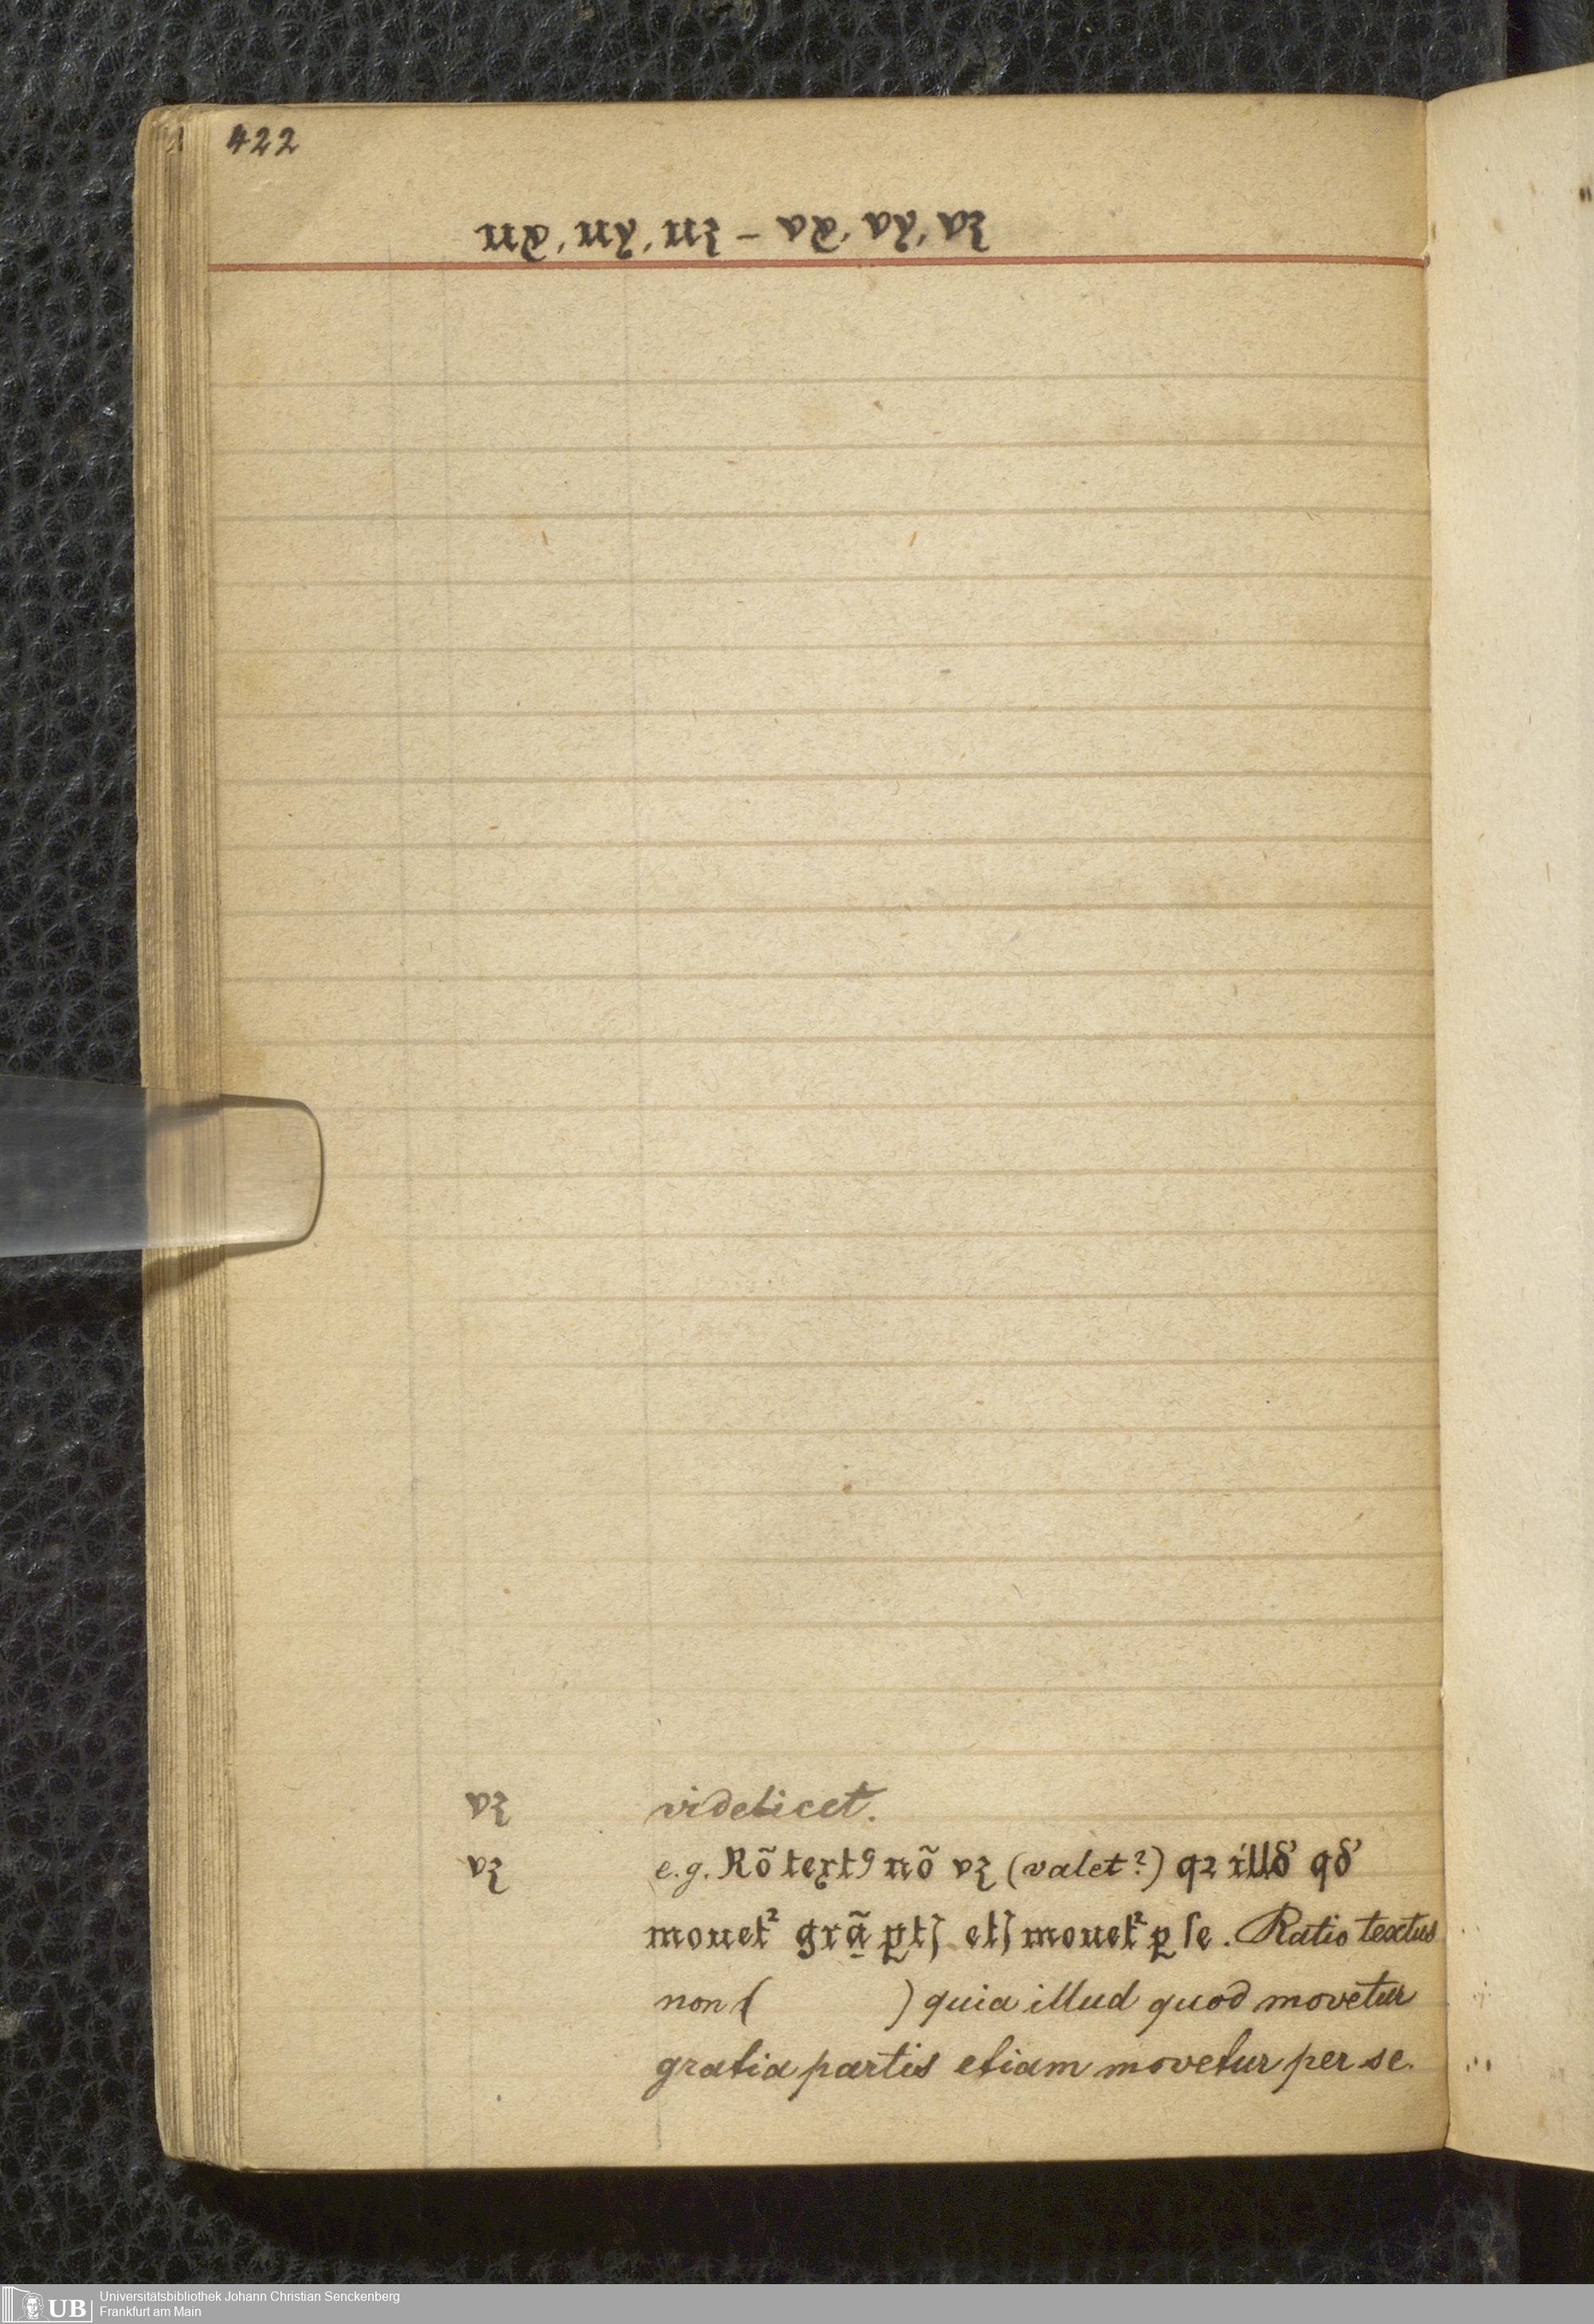 422
uꝛ, uꝛ, uꝫ – vꝛ, vꝛ, vꝫ
vꝫ videlicet.
vꝫ e.g. Rõ textꝰ nõ vꝫ (valet?) qꝛ illδ' qδ'
mouet² grã ꝑtꝭ etꝭ mouet² ꝑ ſe. Ratio textus
non ( ) quia illud quod movetur
gratia partis etiam movetur per se.
Universitätsbibliothek Johann Christian Senckenberg
UB Frankfurt am Main